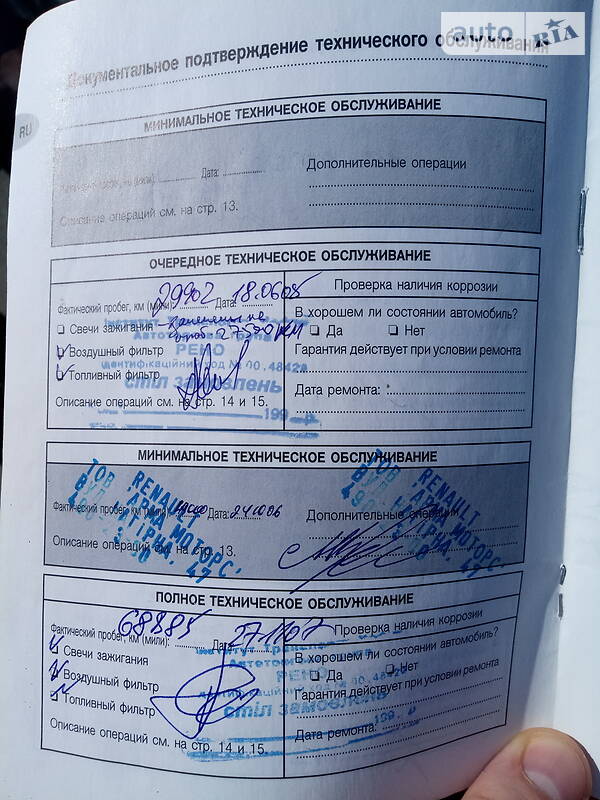 auto RIA
Документальное подтверждение технического обслуживания
RU
МИНИМАЛЬНОЕ ТЕХНИЧЕСКОЕ ОБСЛУЖИВАНИЕ
Дополнительные операции
Дата:
Описание операций см. на стр. 13.
ОЧЕРЕДНОЕ ТЕХНИЧЕСКОЕ ОБСЛУЖИВАНИЕ
Проверка наличия коррозии
Фактический пробег, км (мили): 29902 Дата: 18.0605
В хорошем ли состоянии автомобиль?
Свечи зажигания - заменены на
Да Нет
Воздушный фильтр
РЕНО
Гарантия действует при условии ремонта
ідентифікаційний код № 00.4842
Топливный фильтр
стіл замовлень
Дата ремонта:
Описание операций см. на стр. 14 и 15.
199 р.
МИНИМАЛЬНОЕ ТЕХНИЧЕСКОЕ ОБСЛУЖИВАНИЕ
ТОВ RENAULT
АРМА МОТОРС,
ТОВ RENAULT
АРМА МОТОРС,
Фактический пробег, км (мили): Дата: 241006
Дополнительные операции
Описание операций см. на стр. 13.
ПОЛНОЕ ТЕХНИЧЕСКОЕ ОБСЛУЖИВАНИЕ
Фактический пробег, км (мили): 68885 Дата: 27.1107
Проверка наличия коррозии
Свечи зажигания
В хорошем ли состоянии автомобиль?
РЕНО
Да Нет
Воздушный фильтр
Гарантия действует при условии ремонта
Топливный фильтр
стіл замовлень
199 р.
Дата ремонта:
Описание операций см. на стр. 14 и 15.